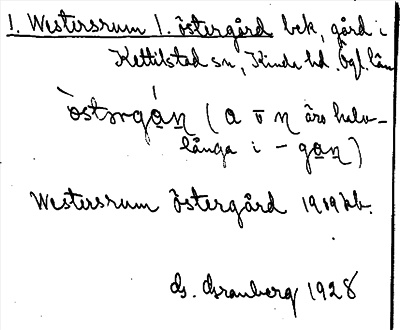 1. Westersrum 1. Östergård bek, gård i
Kettilstad sn, Kinda hd. Ögl. län
östərgán (a o n äro halv-
långa i - gan)
Westersrum Östergård 1919 kb.
G. Granberg 1928